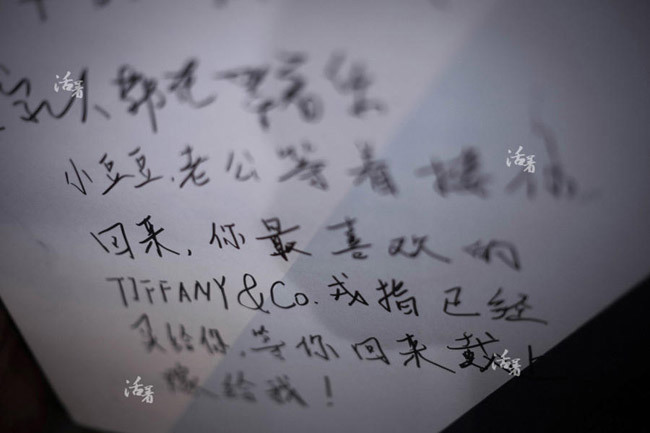 家人都在等着你
小豆豆.老公等着接你
回来,你最喜欢的
TIFFANY&Co.戒指已经
买给你,等你回来戴上
嫁给我!
活着
活着
活着
活着